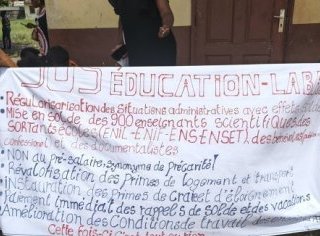 SOS EDUCATION-LABA
• Régularisation des situations administratives avec effets
• Mise en solde des 900 enseignants scientifiques des
sortants écoles (ENIL-ENIF-ENS-ENSET), des
confessionnel et des documentalistes
• NON au pré-salaire, synonyme de précarité!
• Revalorisation des Primes de logement et transport
• Instauration des Primes de Craie et d'éloignement
• Paiement immédiat des rappels de solde et des vacations
• Amélioration des Conditions de travail
Cette fois-ci c'est